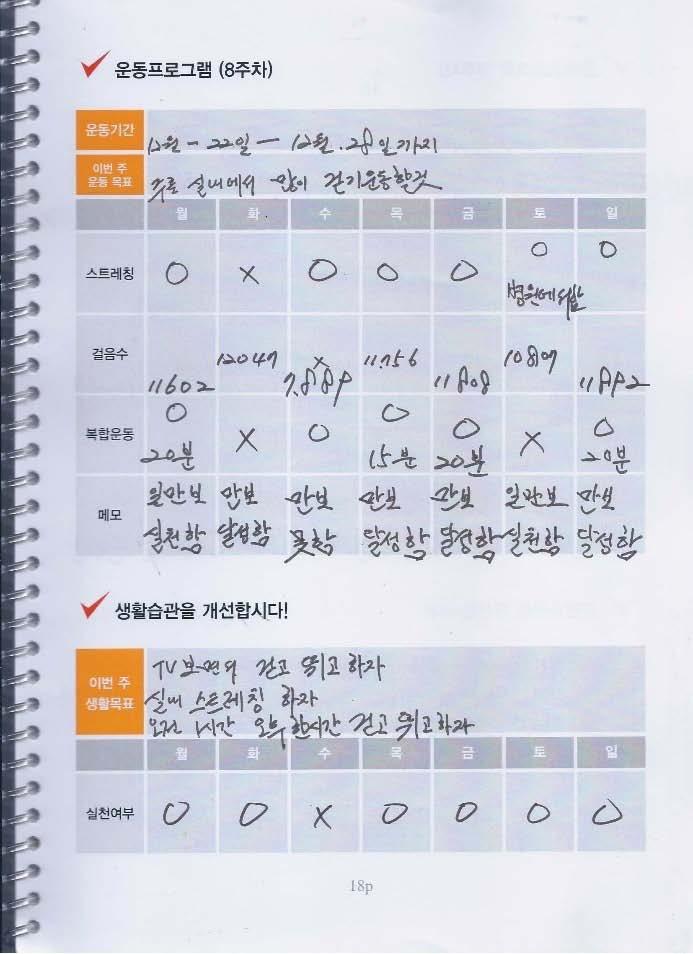 운동프로그램 (8주차)
운동기간 12월 - 22일 - 12월. 28일까지
이번 주 운동 목표 주로 실내에서 많이 걷기운동할것
월 화 수 목 금 토 일
스트레칭 O X O O O O 병원에서함 O
걸음수 11602 12047 X 7.889 11.756 11808 10807 11892
복합운동 O 20분 X O O 15분 O 20분 X O 20분
메모 일만보 실천함 만보 달성함 만보 못함 만보 달성함 만보 달성함 일만보 실천함 만보 달성함
생활습관을 개선합시다!
이번 주 생활목표 TV보면서 걷고 뛰고 하자
실내 스트레칭 하자
오전 1시간 오후 한시간 걷고 뛰고하자
월 화 수 목 금 토 일
실천여부 O O X O O O O
18p